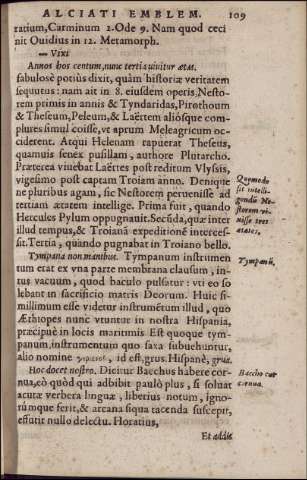 ALCIATI EMBLEM. 109
ratium, Carminum 2. Ode 9. Nam quod ceci
nit Ouidius in 12. Metamorph.
— Vixi
Annos bos centum, nunc tertia viuitur ætas.
fabulosè potiùs dixit, quàm historiæ veritatem
sequutus: nam ait in 8. eiusdem operis, Nesto-
rem primis in annis & Tyndaridas, Pirothoum
& Theseum, Peleum, & Laërtem aliósque com-
plures simul coisse, vt aprum Meleagricum oc-
ciderent. Atqui Helenam rapuerat Theseus,
quamuis senex pusillam, authore Plutarcho.
Præterea viuebat Laërtes post reditum Vlyssis,
vigesimo post captam Troiam anno. Denique
ne pluribus agam, sic Nestorem peruenisse ad
tertiam ætatem intellige. Prima fuit, quando
Hercules Pylum oppugnauit. Secūda, quæ inter
illud tempus, & Troianā expeditionē interces-
sit. Tertia, quando pugnabat in Troiano bello.
Quomodo
sit intelli-
gendū Ne-
storem vi-
xisse tres
ætates.
Tympana non manibus. Tympanum instrumen
tum erat ex vna parte membrana clausum, in-
tus vacuum, quod baculo pulsatur: vti eo so
lebant in sacrificio matris Deorum. Huic si-
millimum esse videtur instrumētum illud, quo
Æthiopes nunc vtuntur in nostra Hispania,
præcipuè in locis maritimis Est quoque tym-
panum, instrumentum quo saxa subuehuntur,
alio nomine id est, grus. Hispanè, grua.
Tympanū.
Hoc docet nostro. Dicitur Bacchus habere cor-
nua, eò quòd qui adbibit paulò plus, si soluat
acutæ verbera linguæ, liberius notum, igno-
rúmque ferit, & arcana siqua tacenda suscepit,
effutit nullo delectu. Horatius,
Baccho cur
cornua.
Et addis